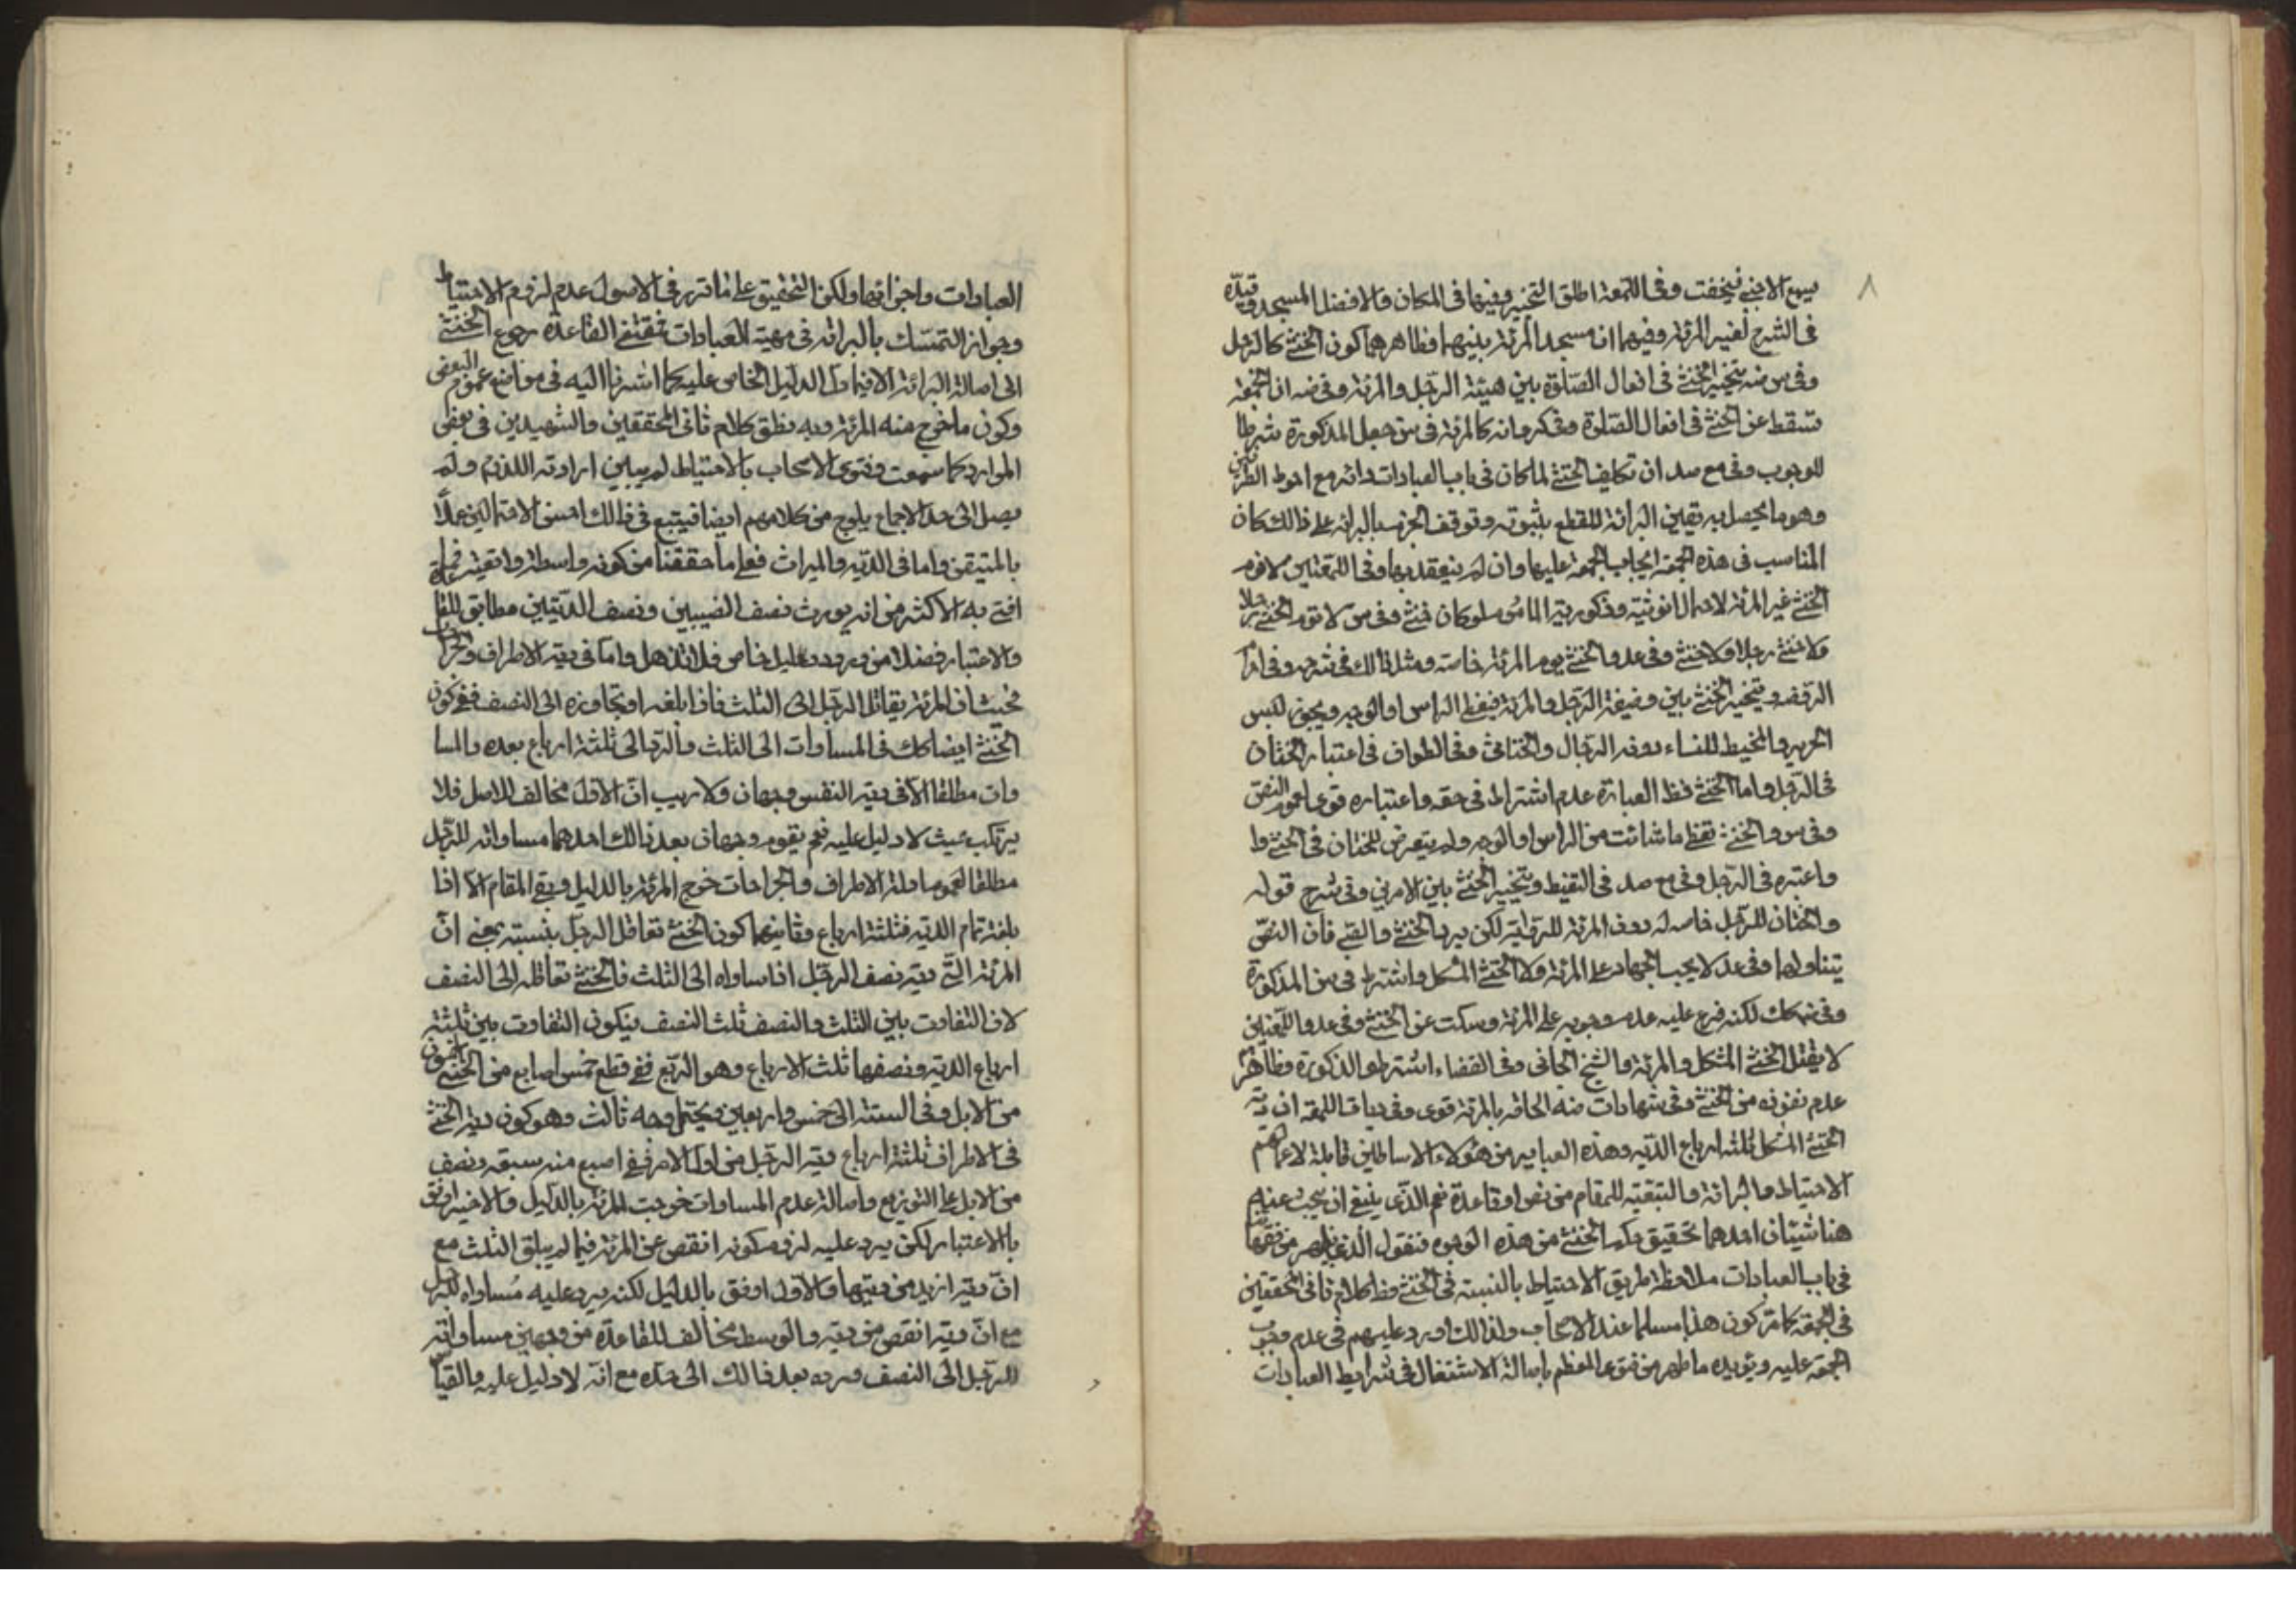 ٨
يسمع الاجنبي فيخفت وفي اللمعة اطلق التخيير وفيها في المكان والافضل المسجد وقيده
في الشرح لغير المرئة وفيهما ان مسجد المرئة بيتها فظاهرهما كون الخنثى كالرجل
وفي س ضه يتخير الخنثى في افعال الصلوة بين هيئة الرجل والمرئة وفي ضه ان الجمعة
تسقط عن الخنثى في افعال الصلوة وفي كره انه كالمرئة في س جعل المذكورة شرطا
للوجوب وفي مع صد ان تكليف الخنثى لما كان في باب العبادات دائر مع احوط الطرفين
وهو ما يحصل به يقين البرائة للقطع بثبوته وتوقف الجزم بالبرائة على ذالك كان
المناسب في هذه الجمعة ايجاب الجمعة عليها وان لم ينعقد بها وفي اللمعتين
الخنثى غير المرئة لاحتمال انوثيته وذكورية الماموم لو كان خنثى وفي س لا تؤم الخنثى رجلا
ولا خنثى رجلا ولا خنثى وفي عد والخنثى يوم المرئة خاصة ومثل ذالك في شرحه وفي
الروضة ويتخير الخنثى بين وظيفة الرجل والمرئة فيغطى الراس او الوجه ويجوز لبس
الحرير والمخيط للنساء دون الرجال والخناثى وفي الطواف في اعتبار الختان
في الرجل واما الخنثى فظ العبارة عدم اشتراط في حقه واعتباره قوى لعموم النص
وفي س والخنثى تغطى ما شائت من الراس او الوجه ولم يتعرض للختان في الخنثى وا
واعتبره في الرجل وفي مع صد في التقنيط ويتخير الخنثى بين الامرين وفي شرح قوله
والختان للرجل خاصه له دون المرئة للرواية لكن يرد الخنثى والصبي فان النص
يتناولهما وفي عد لا يجب الجهاد على المرئة ولا الخنثى المشكل واشتراط في س المذكورة
وفي ضه كك لكنه فرع عليه عدم وجوبه على المرئة وسكت عن الخنثى وفي عد واللمعتين
لا يقتل الخنثى المشكل والمرئة والشيخ الفاني وفي القضاء اشترطوا الذكورة وظاهرهم
عدم نفوذه من الخنثى وفي شهادات ضه الحاقه بالمرئة قوى وفي ديات اللمعة ان دية
الخنثى المشكل ثلثة ارباع الدية وهذه العباير من هؤلاء الاساطين قابلة لاعمالهم
الاحتياط والبرائة والتبعية للمقام من نص او قاعدة نعم الذي ينبغي ان يبحث عنه
هنا شيئان احدهما تحقيق حكم الخنثى من هذه الوجوه فنقول الذي يظهر من فقهائنا
في باب العبادات ملاحظة طريق الاحتياط بالنسبة في الخنثى وظ كلام ثاني المحققين
في الجمعة كما مر كون هذا مسلما عند الاصحاب ولذالك اورد عليهم في عدم وجوب
الجمعة عليه ويؤيده ما ظهر من فتوى المعظم باصالة الاشتغال في شرايط العبادات
العبادات واجزائها ولكن التحقيق على ما تقرر في الاصول عدم لزوم الاحتياط
وجواز التمسك بالبرائة في مهية العبادات فيقتضى القاعدة رجوع الخنثى
الى اصالة البرائة الا فيما دل الدليل الخاص عليه كما اشرنا اليه في مواضع عموم النص
وكون ما خرج منه المرئة وبه نطق كلام ثاني المحققين والشهيدين في بعض
الموارد كما سمعت وفتوى الاصحاب بالاحتياط لم يبين ارادته اللزوم ولم
يصل الى حد الاجماع يلوح من كلامهم ايضا فيتبع في ذالك احسن الاحتمالين عملا
بالمتيقن واما في الدية والميراث فعلى ما حققنا من كونه واسطة واقعية فما
افتى به الاكثر من انه يورث نصف النصيبين ونصف الديتين مطابق للقاعدة
والاعتبار فضلا من ورود دليل خاص فلا تذهل واما في دية الاطراف والجراحات
فحيث ان المرئة يقابل الرجل الى الثلث فاذا بلغه او تجاوزه الى النصف ففي كون
الخنثى ايضا كك في المساوات الى الثلث والرد الى ثلثة ارباع بعده والمسا
وات مطلقا الا في دية النفس وجهان ولا ريب ان الاول مخالف للاصل فلا
يرتكب حيث لا دليل عليه نعم يقوم وجهان بعد ذالك احدهما مساواته للرجل
مطلقا لعموم ادلة الاطراف والجراحات خرج المرئة بالدليل وبقى المقام الا اذا
بلغت تمام الدية فثلثة ارباع وثانيهما كون الخنثى تعاقل الرجل بنسبته بمعنى ان
المرئة التي ديته نصف الرجل اذا ساواه الى الثلث فالخنثى تعاقله الى النصف
لان التفاوت بين الثلث والنصف ثلث النصف فيكون التفاوت بين ثلثة
ارباع الدية ونصفها ثلث الارباع وهو الربع ففي قطع خمس اصابع من الخنثى خمسون
من الابل وفي الستة الى خمس واربعين ويحتمل وجه ثالث وهو كون دية الخنثى
في الاطراف ثلثة ارباع دية الرجل من اول الامر ففي اصبع منه سبعة ونصف
من الابل على التوزيع واصالة عدم المساوات خرجت المرئة بالدليل والاخير اوفق
بالاعتبار لكن يرد عليه لزوم كونه انقص عن المرئة فيما لم يبلغ الثلث مع
ان ديته ازيد من ديتها والاول اوفق بالدليل لكنه يرد عليه مساواه للرجل
مع ان ديته انقص من ديته والوسط مخالف للقاعدة من وجهين مساواته
للرجل الى النصف ورده بعد ذالك الى حده مع انه لا دليل عليه والقياس